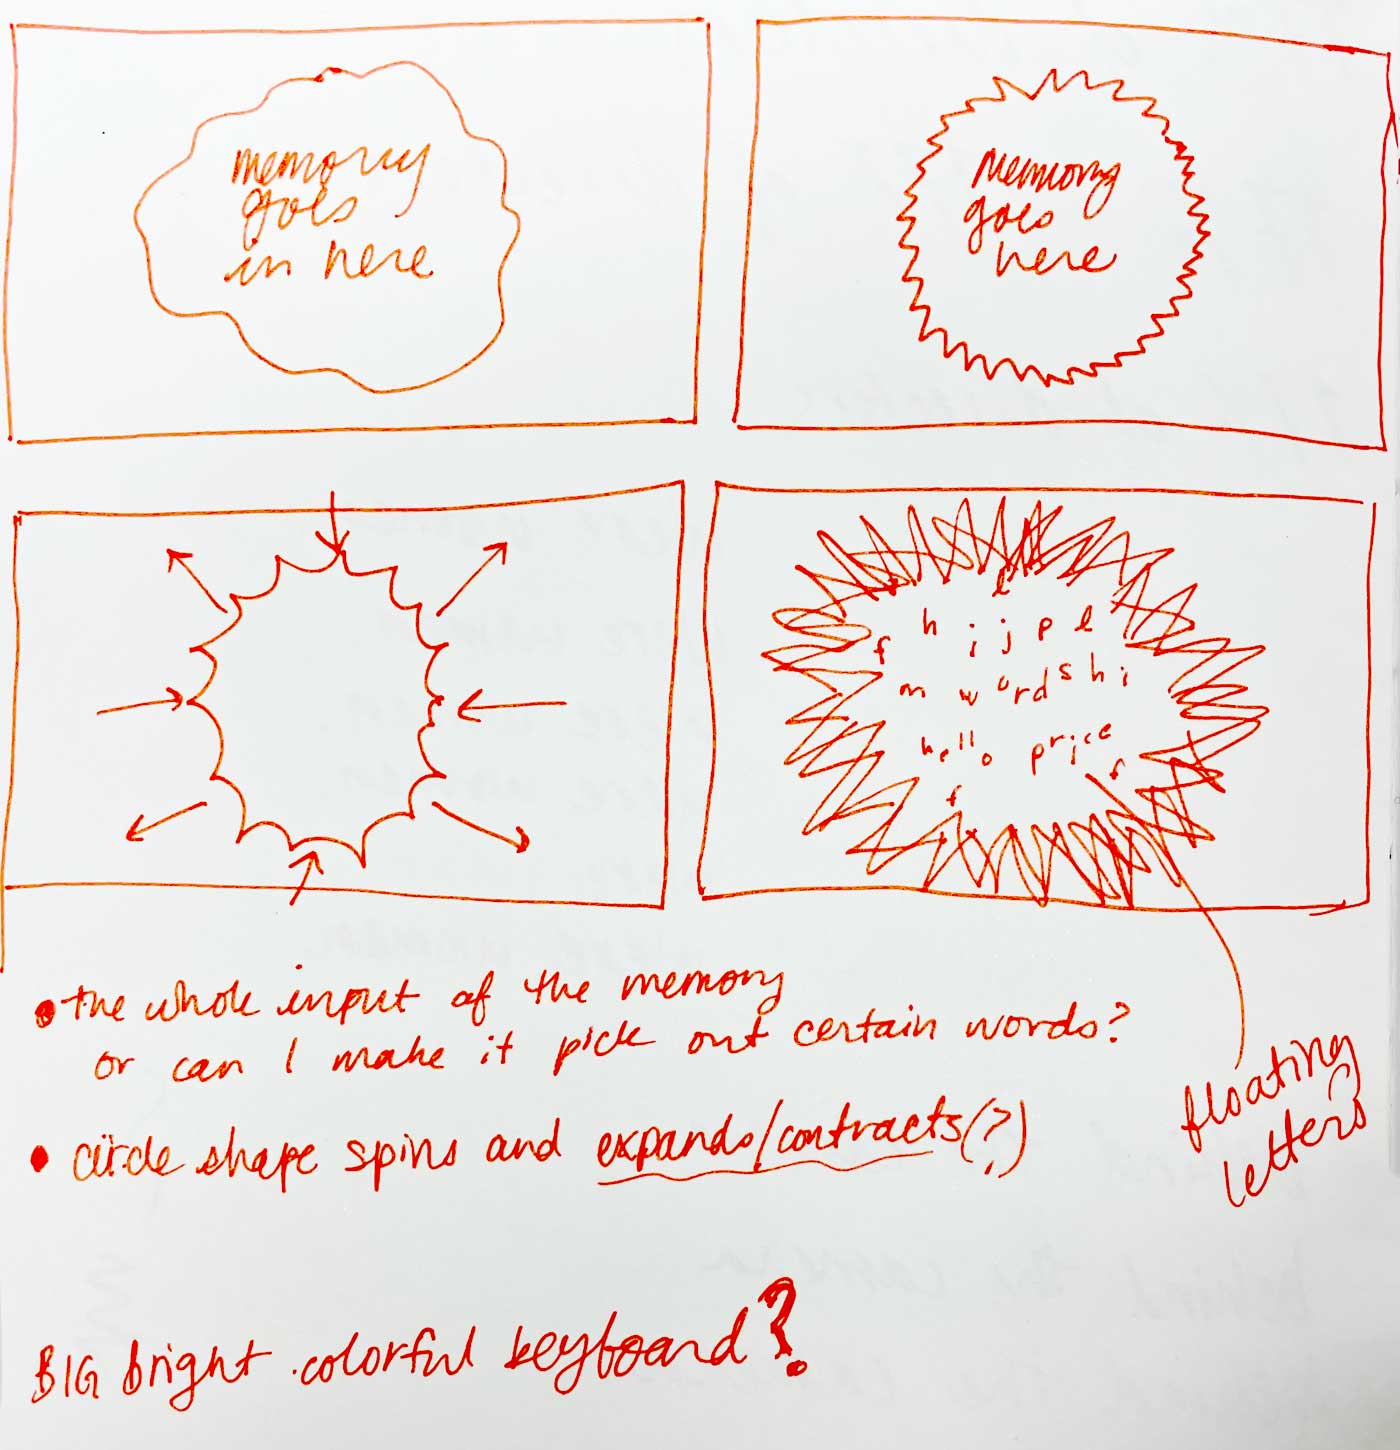 memory
goes
in here
memory
goes
here
l
h i j p l
f
m w o r d s h i
hello price
f
f
• the whole input of the memory
or can I make it pick out certain words?
• circle shape spins and expands/contracts(?)
floating
letters
BIG bright colorful keyboard?